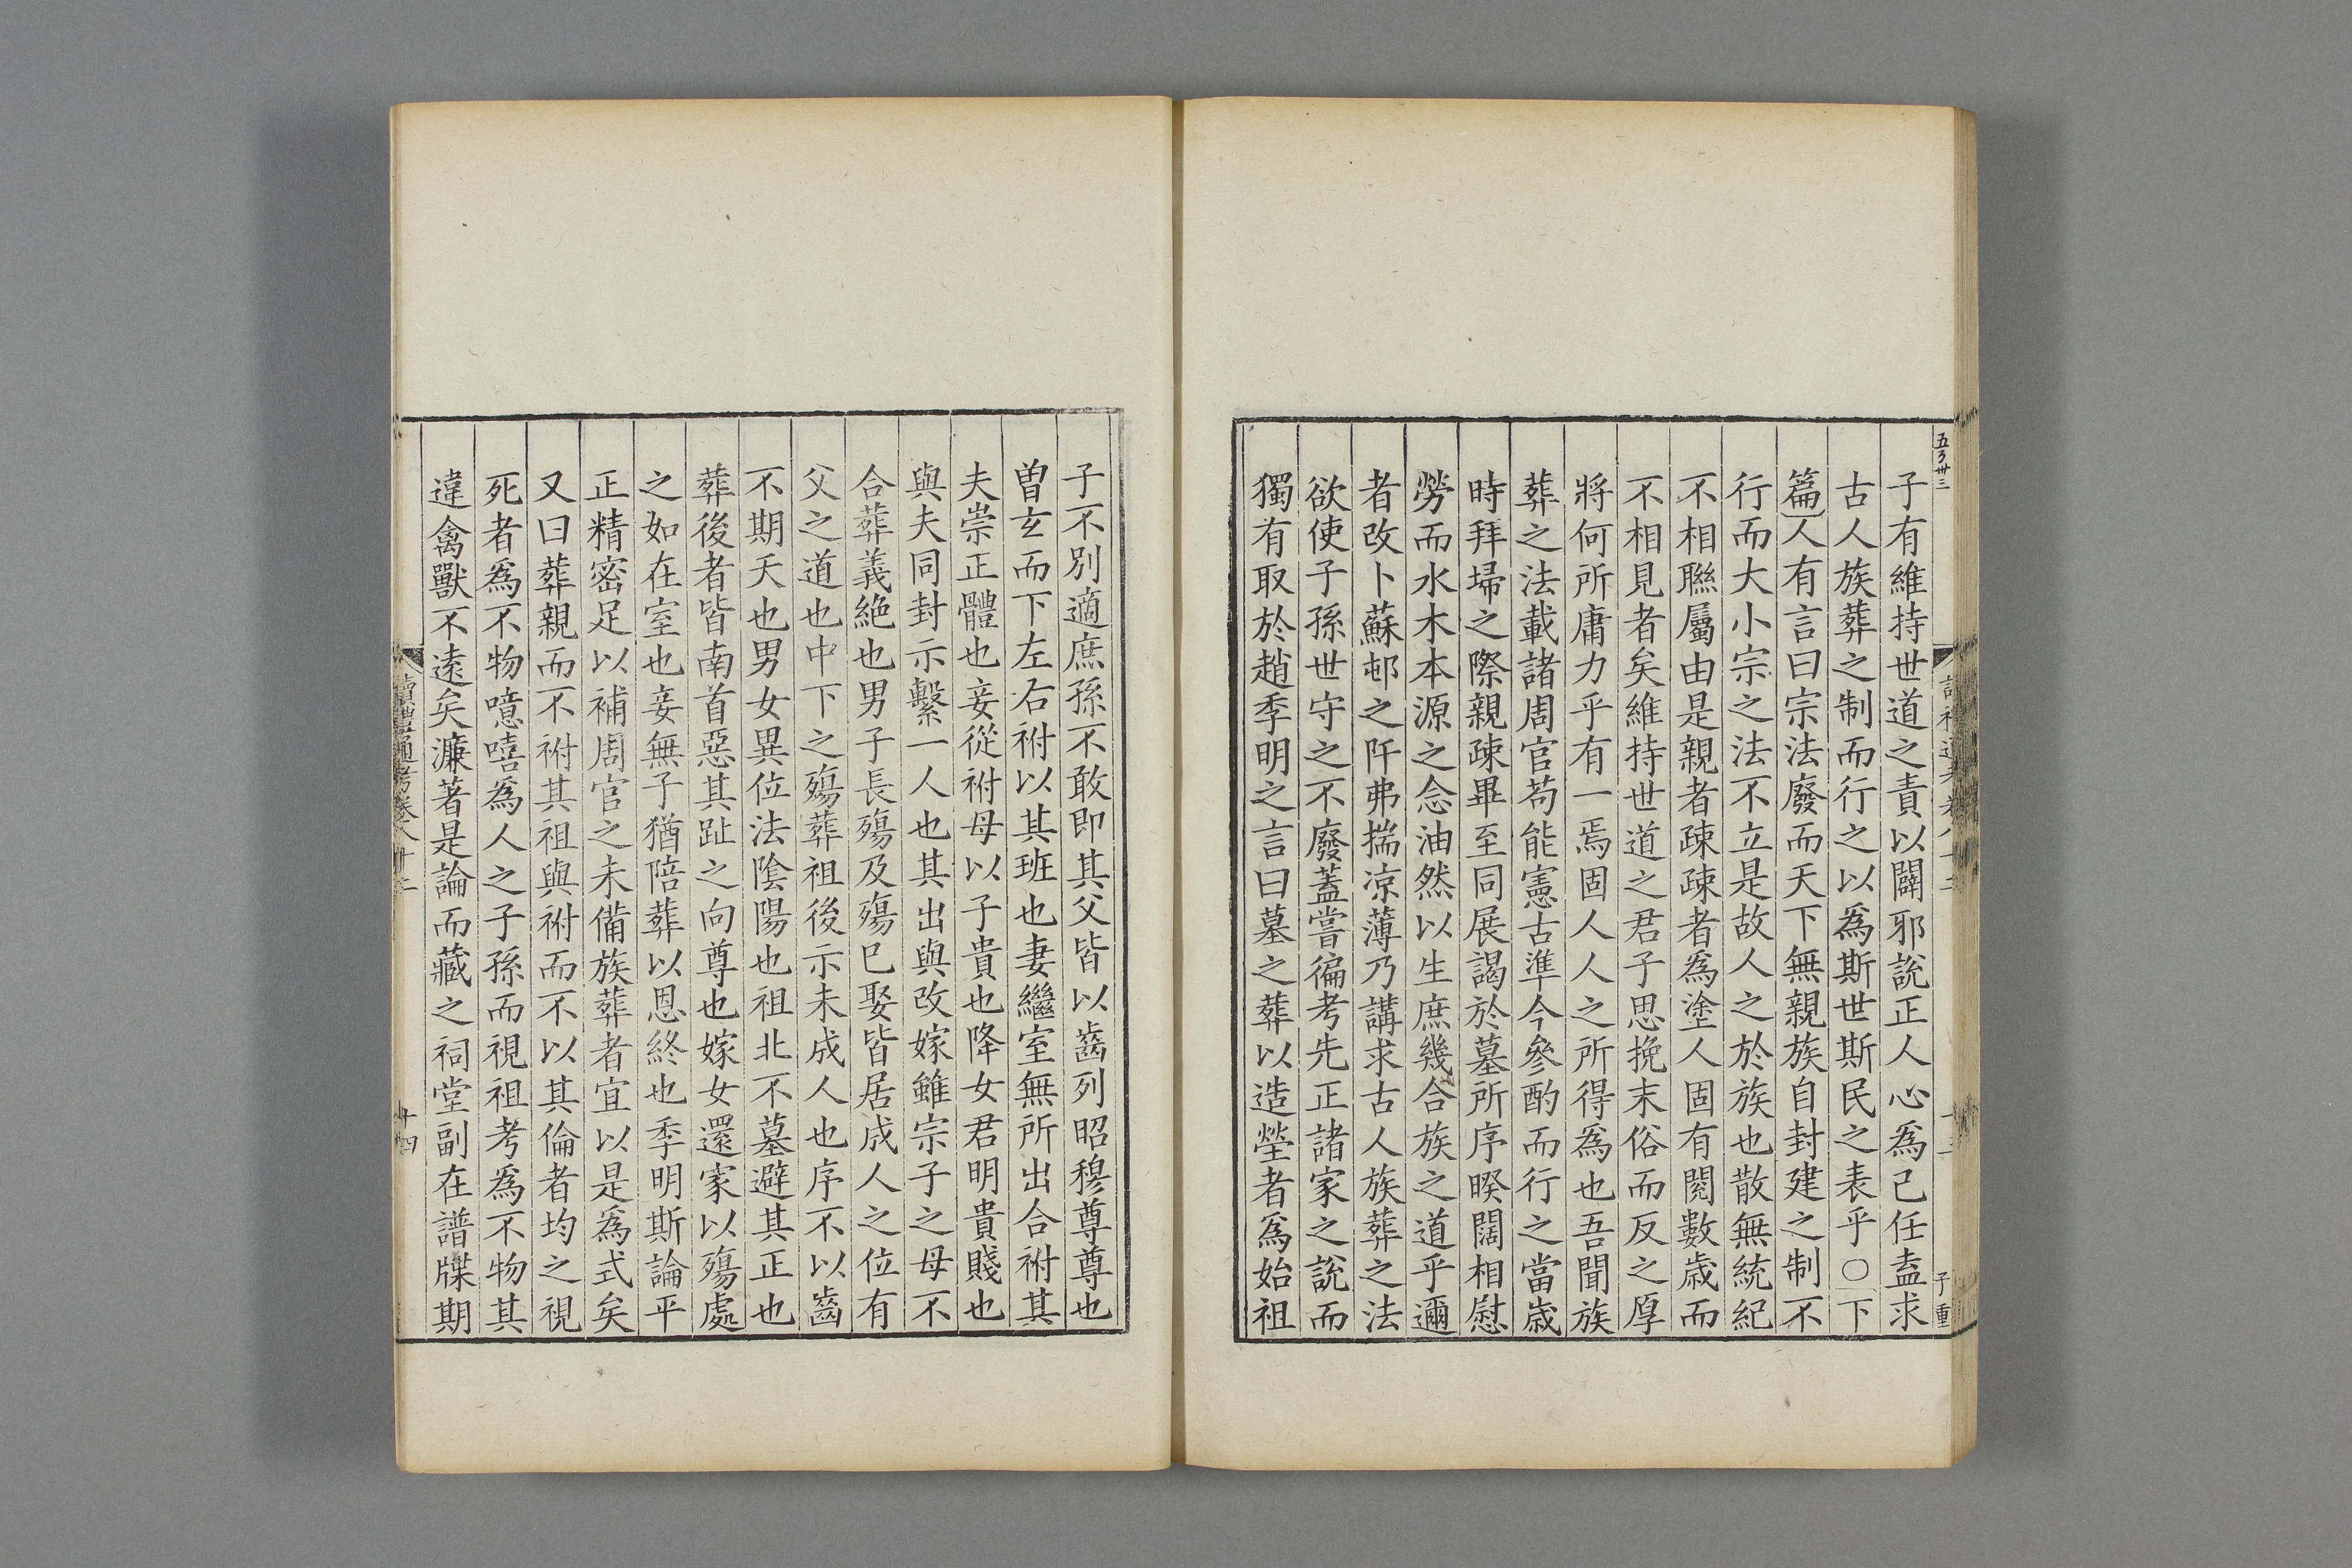 子有維持世道之責以闢邪說正人心爲己任盍求
古人族葬之制而行之以爲斯世斯民之表乎〇下
篇人有言曰宗法廢而天下無親族自封建之制不
行而大小宗之法不立是故人之於族也散無統紀
不相聮屬由是親者疎疎者爲塗人固有閱數歳而
不相見者矣維持世道之君子思挽末俗而反之厚
將何所庸力乎有一焉固人人之所得爲也吾聞族
葬之法載諸周官苟能憲古準今參酌而行之當歳
時拜埽之際親疎畢至同展謁於墓所序暌闊相慰
勞而水木本源之念油然以生庶幾合族之道乎邇
者改卜蘇邨之阡弗揣凉薄乃講求古人族葬之法
欲使子孫世守之不廢蓋嘗徧考先正諸家之說而
獨有取於趙季明之言曰墓之葬以造塋者爲始祖
子不別適庶孫不敢即其父皆以齒列昭穆尊尊也
曽玄而下左右祔以其班也妻繼室無所出合祔其
夫崇正體也妾從祔母以子貴也降女君明貴賤也
與夫同封示繫一人也其出與改嫁雖宗子之母不
合葬義絶也男子長殤及殤已娶皆居成人之位有
父之道也中下之殤葬祖後示未成人也序不以齒
不期夭也男女異位法陰陽也祖北不墓避其正也
葬後者皆南首惡其趾之向尊也嫁女還家以殤處
之如在室也妾無子猶陪葬以恩終也季明斯論平
正精密足以補周官之未備族葬者宜以是爲式矣
又曰葬親而不祔其祖與祔而不以其倫者均之視
死者爲不物噫嘻爲人之子孫而視祖考爲不物其
違禽獸不遠矣濂著是論而藏之祠堂副在譜牒期
讀禮通考卷八十二